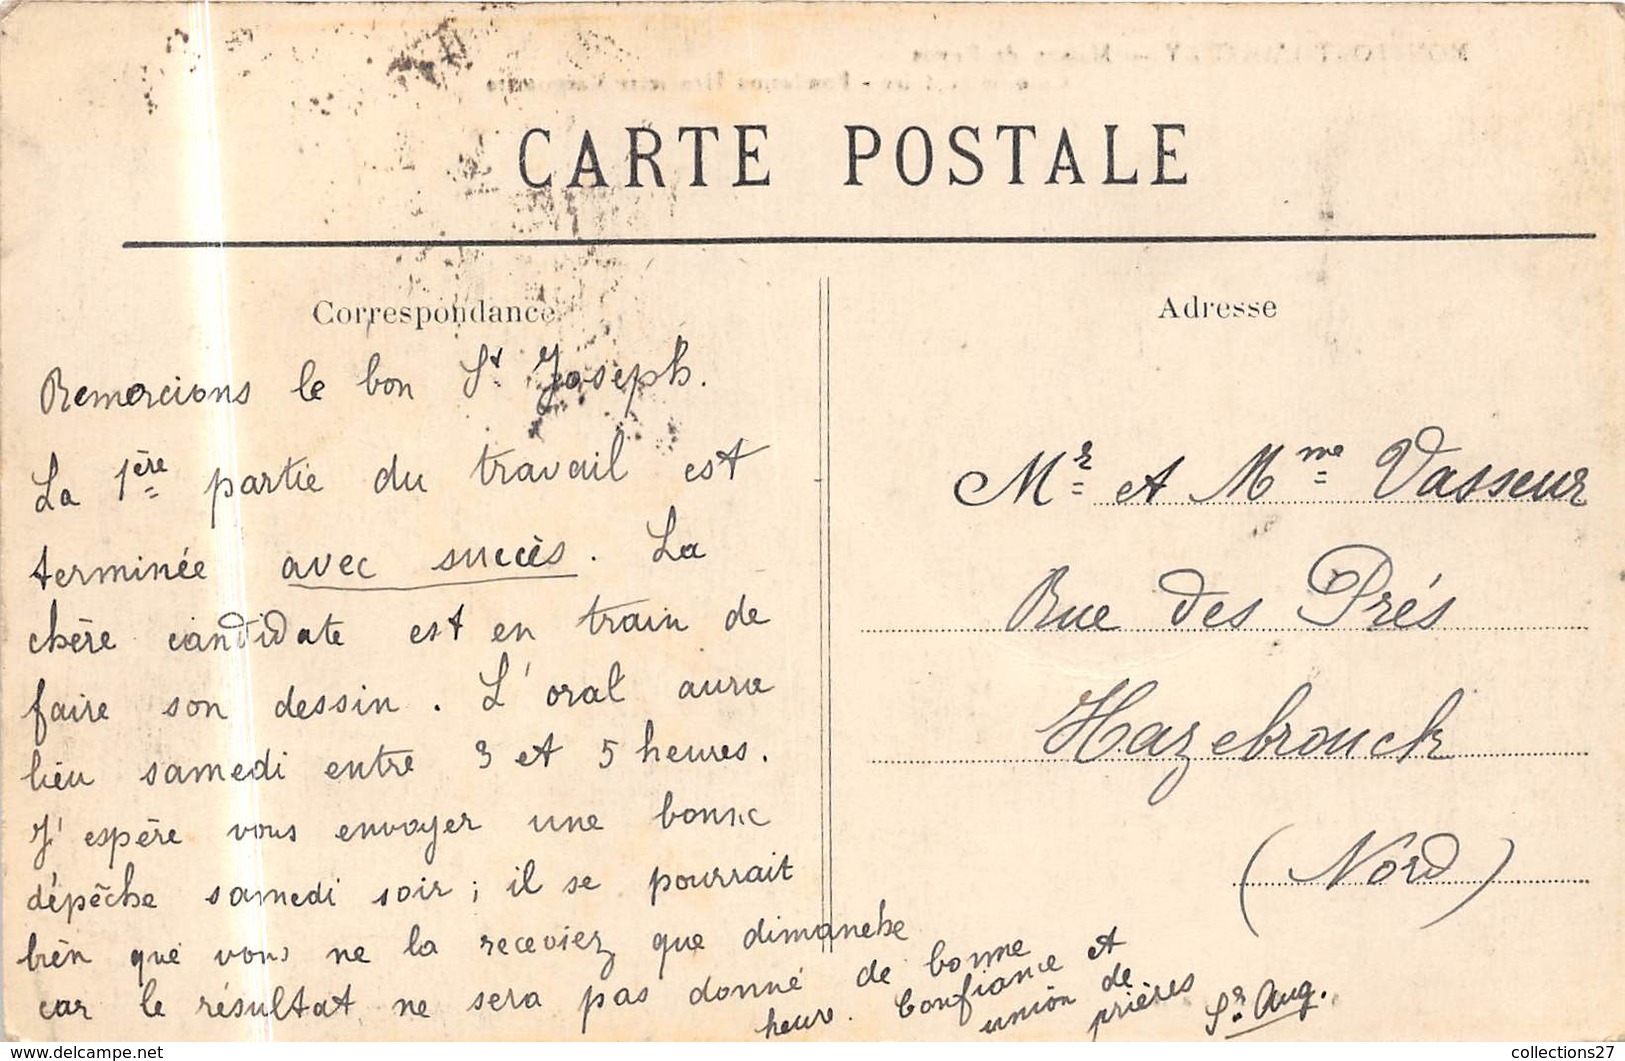 CARTE POSTALE
Correspondance
Remercions le bon St Joseph.
La 1ère partie du travail est
terminée avec succès. La
chère candidate est en train de
faire son dessin. L'oral aura
lieu samedi entre 3 et 5 heures.
J'espère vous envoyer une bonne
dépêche samedi soir ; il se pourrait
bien que vous ne la receviez que dimanche
car le résultat ne sera pas donné de bonne
heure. Confiance et
union de
prières
Sr Aug.
Adresse
Mr et Mme Vasseur
Rue des Prés
Hazebrouck
(Nord)
collections27